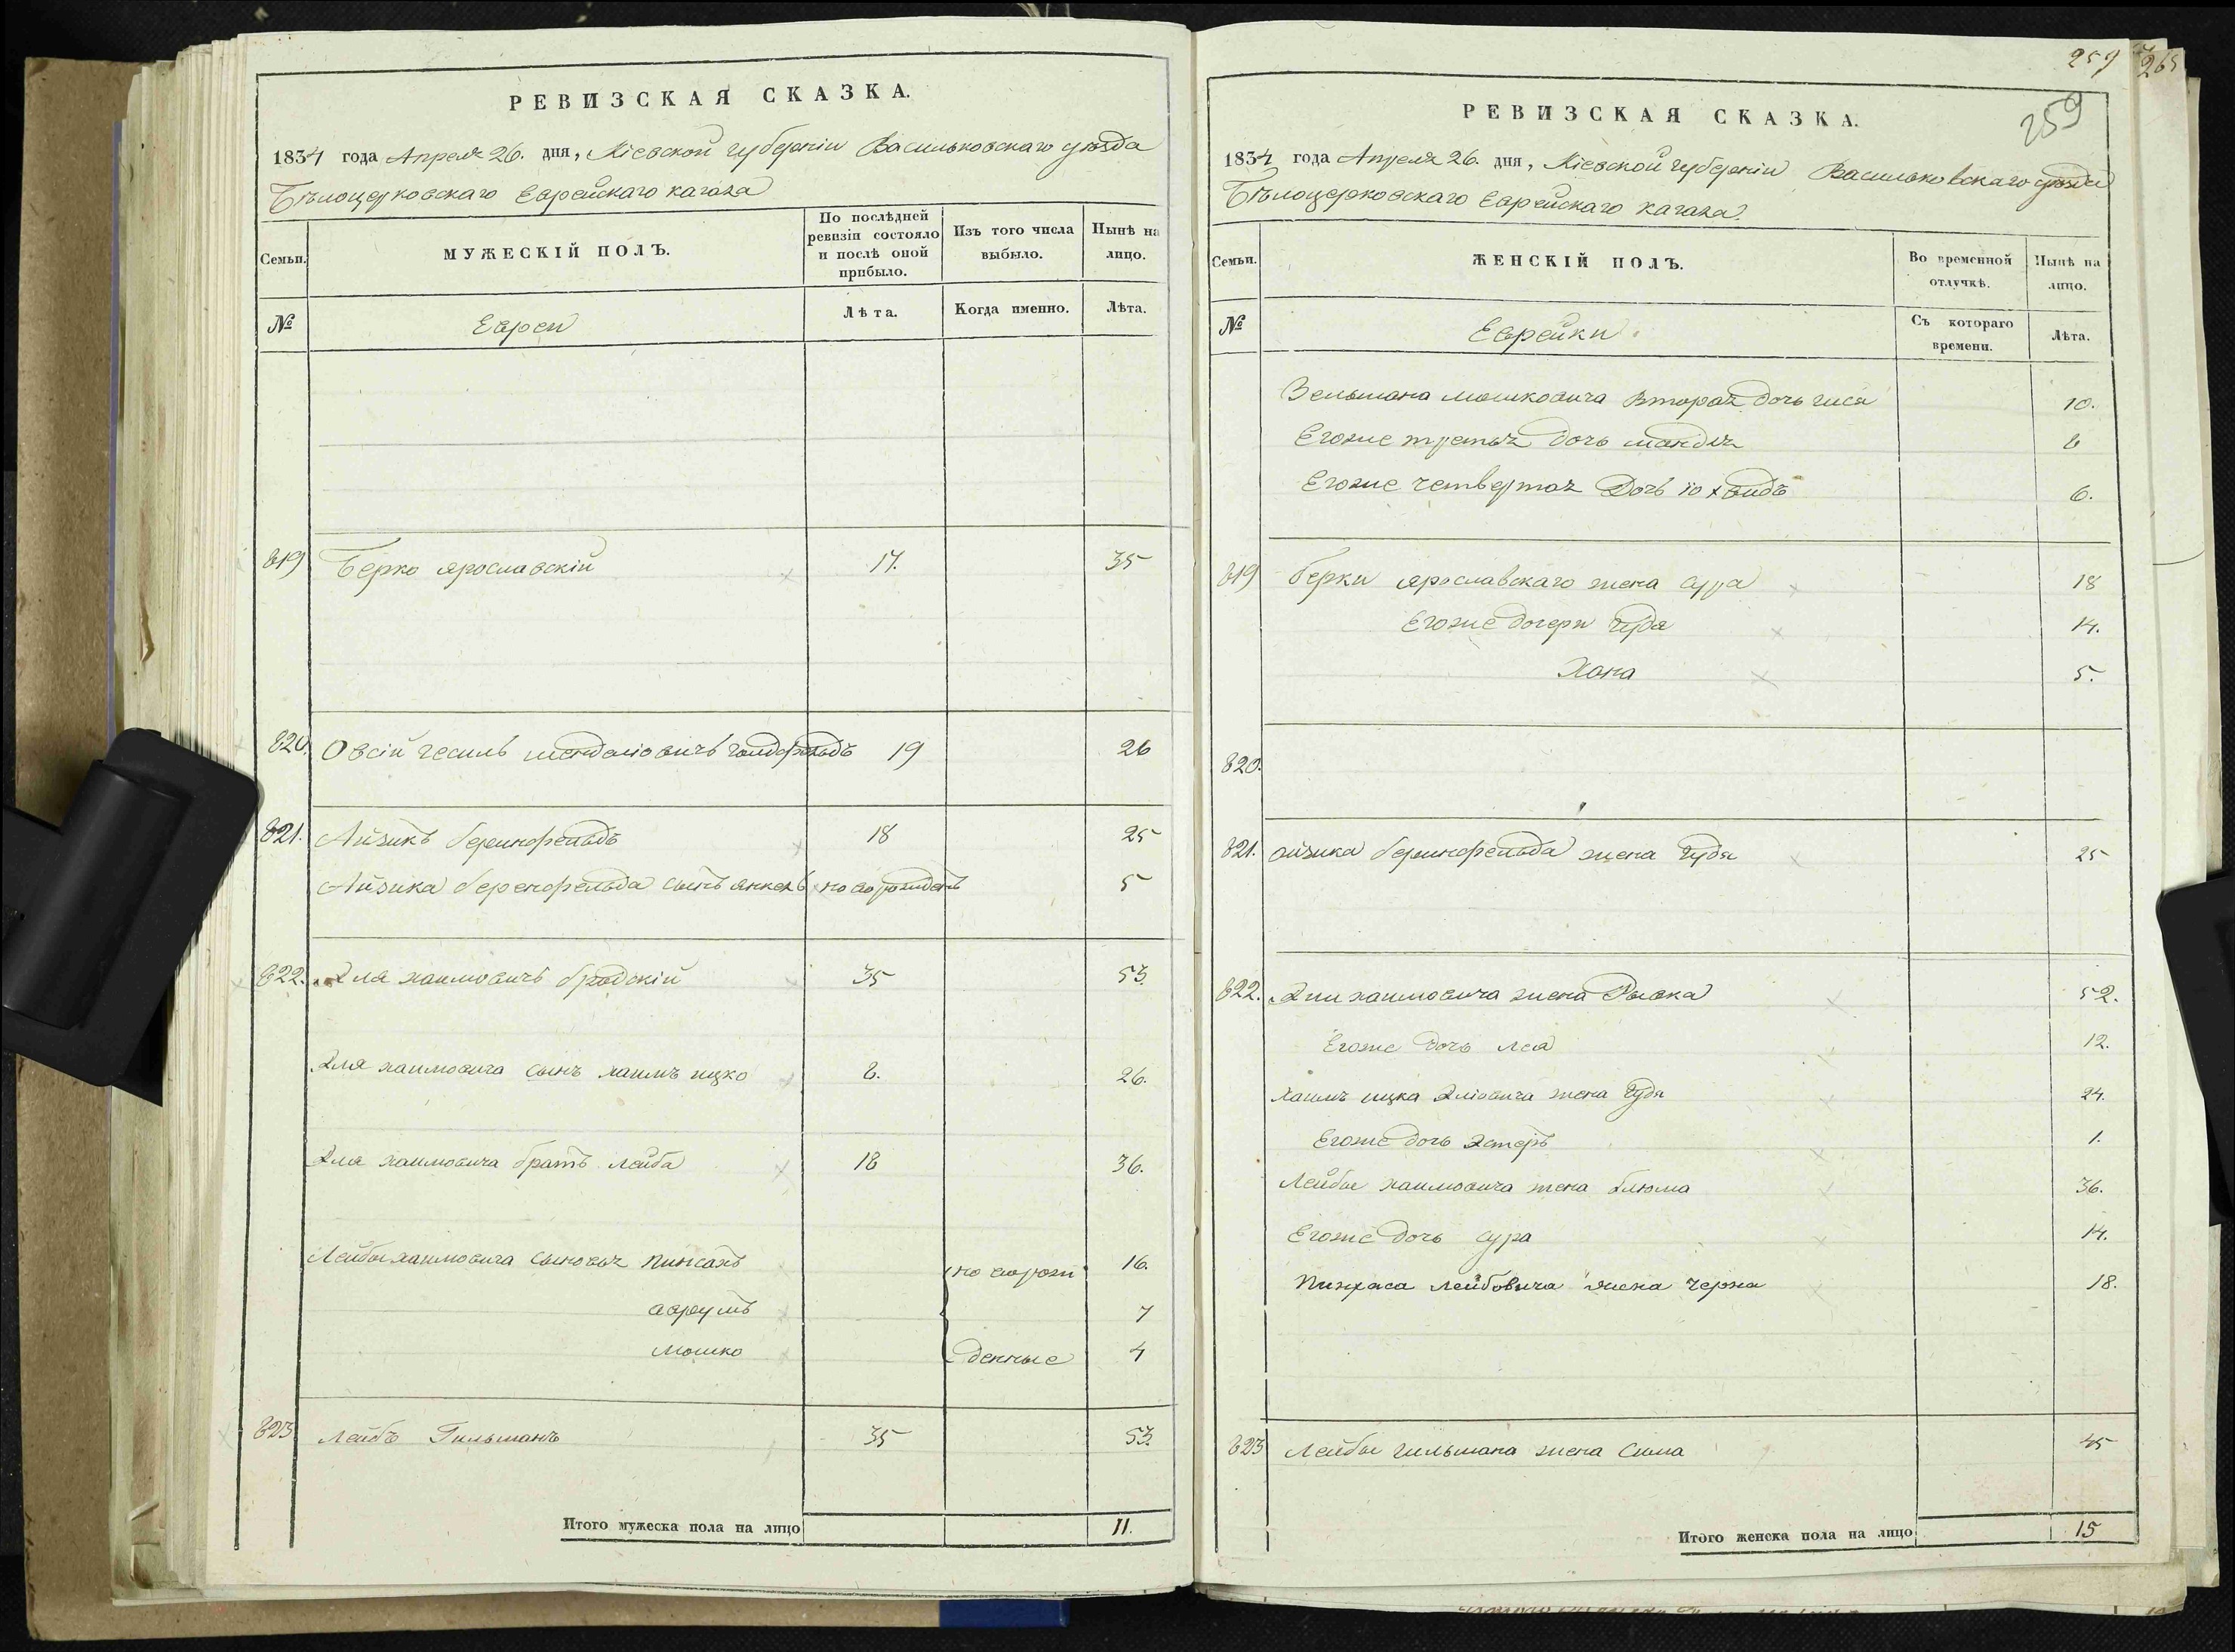 РЕВИЗСКАЯ СКАЗКА.
1834 года Апреля 26. дня, Кіевской губерніи Васильковскаго уѣзда
Бѣлоцерковскаго Еврейскаго кагала
Семьи.
МУЖЕСКІЙ ПОЛЪ.
По послѣдней ревизіи состояло и послѣ оной прибыло.
Изъ того числа выбыло.
Нынѣ на лицо.
№
Евреи
Лѣта.
Когда именно.
Лѣта.
819 Берко ярославскій 17. 35
820. Овсій 19 26
821. Айзикъ беренфельдъ 18 25
Айзика беренфельда сынъ янкель новорожденъ 5
822. Эля хаимовичъ бродскій 35 53.
Эля хаимовича сынъ хаимъ ицко 8. 26.
Эля хаимовича братъ лейба 18 36.
Лейбы хаимовича сыновья пинхасъ новорож 16.
аврумъ 7
мошко денные 4
823 Лейбъ Гильманъ 35 53.
Итого мужеска пола на лицо 11.
259 265
259
РЕВИЗСКАЯ СКАЗКА.
1834 года Апреля 26. дня, Кіевской губерніи Васильковскаго уѣзда
Бѣлоцерковскаго Еврейскаго кагала.
Семьи.
ЖЕНСКІЙ ПОЛЪ.
Во временной отлучкѣ.
Нынѣ на лицо.
№
Еврейки
Съ котораго времени.
Лѣта.
мошковича вторая дочь 10.
Егоже третья дочь 8
Егоже четвертая дочь 6.
819 берки ярославскаго жена сура 18
Егоже дочери 14.
Хана 5.
820.
821. айзика беренфельда жена 25
822. Эли хаимовича жена Рывка 52.
Егоже дочь лея 12.
Хаимъ ицка Эліовича жена 24.
Егоже дочь Эстеръ 1.
Лейбы хаимовича жена блюма 36.
Егоже дочь сура 14.
Пинхаса лейбовича жена черна 18.
823 Лейбы гильмана жена сима 45
Итого женска пола на лицо 15